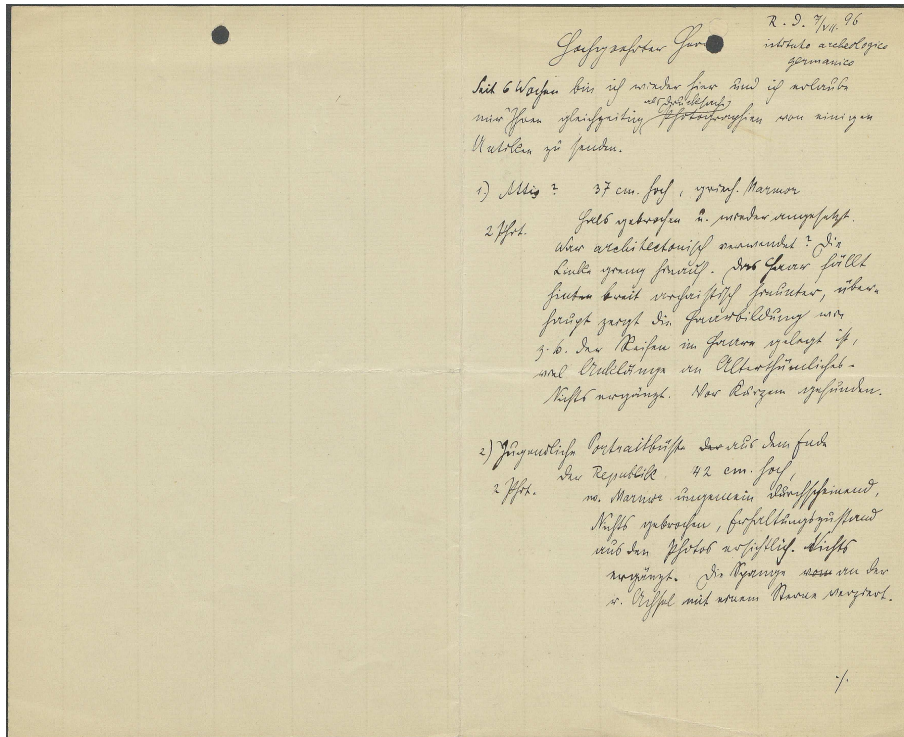 R. d. 7/VII. 96
istituto archeologico
germanico
Hochgeehrter Herr
Seit 6 Wochen bin ich wieder hier und ich erlaube
als Drucksache
mir Ihnen gleichzeitig Photographien von einigen
Antiken zu senden.
1.) Attis ? 37 cm. hoch, griech. Marmor
Hals gebrochen u. wieder angesetzt.
2 Pht. War architectonisch verwendet? Die
Linke hinauf. Das Haar fällt
hinten breit archaistisch herunter, über-
haupt zeigt die Haarbildung wie
z. b. der Reifen im Haare gelegt ist,
viel Anklänge an Alterthümliches.
Nichts ergänzt. Vor Kurzem gefunden.
2) Jugendliche Portraitbüste der aus dem Ende
der Republik 42 cm. hoch,
2 Pht. w. Marmor ungemein durchscheinend,
Nichts gebrochen, Erhaltungszustand
aus den Photos ersichtlich. Nichts
ergänzt. Die Spange vorn an der
r. Achsel mit einem Sterne verziert.
./.